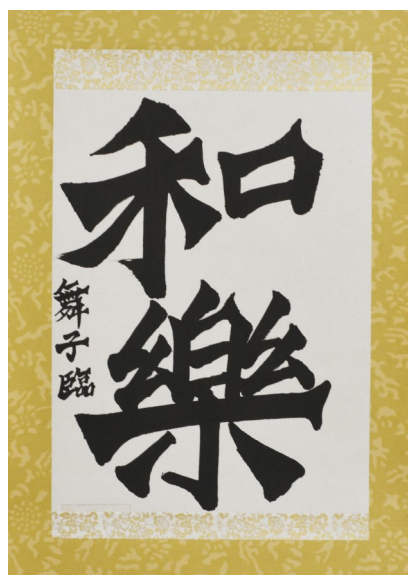 和樂
舞子臨